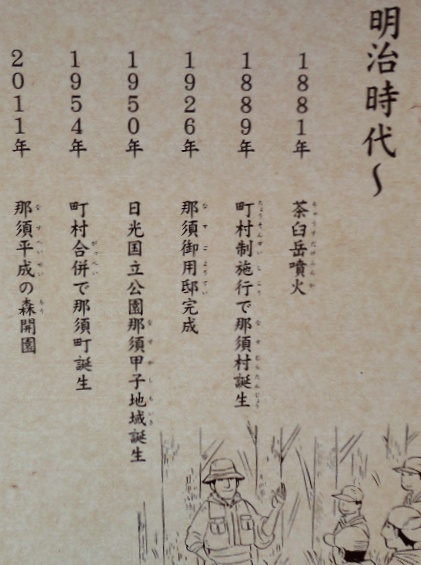 明治時代〜
1881年 茶臼岳噴火
1889年 町村制施行で那須村誕生
1926年 那須御用邸完成
1950年 日光国立公園那須甲子地域誕生
1954年 町村合併で那須町誕生
2011年 那須平成の森開園